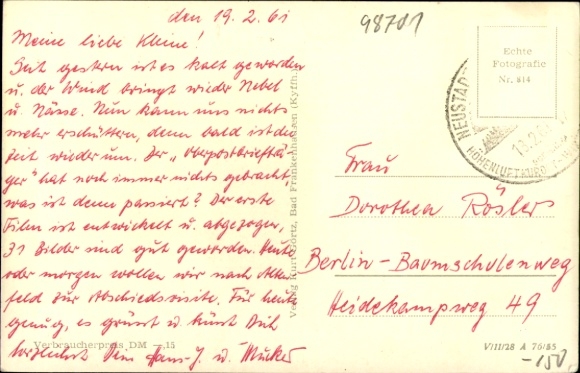 den 19. 2. 61
98701
Meine liebe Kleine!
Seit gestern ist es kalt geworden
u. der Wind bringt wieder Nebel
u. Nässe. Nun kann uns nichts
mehr erschüttern, denn bald ist die
Zeit wieder um. Der „Oberpostbriefträ-
ger" hat noch immer nichts gebracht,
was ist denn passiert? Der erste
Film ist entwickelt u. abgezogen,
31 Bilder sind gut geworden. Heute
oder morgen wollen wir nach Alten-
feld zur Abschiedsvisite. Für heute
genug, es grüsst u. küsst Dich
herzlichst Dein Hans-J. u. Mucker
Verbraucherpreis DM -,15
Verlag Kurt Görtz, Bad Frankenhausen (Kyffh.)
Echte
Fotografie
Nr. 814
NEUSTADT
HÖHENLUFTKURO
Frau
Dorothea Rösler
Berlin-Baumschulenweg
Heidekampweg 49
V/11/28 A 76/55
-150